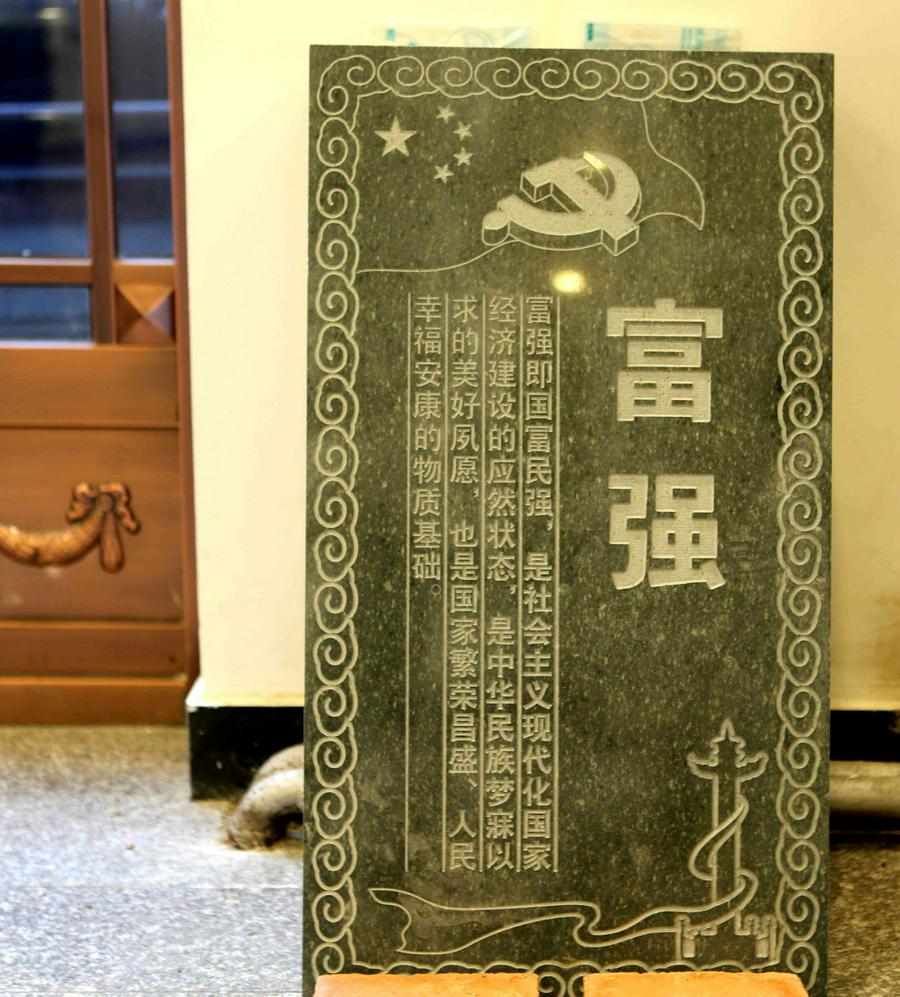 富强
富强即国富民强，是社会主义现代化国家
经济建设的应然状态，是中华民族梦寐以
求的美好夙愿，也是国家繁荣昌盛、人民
幸福安康的物质基础。